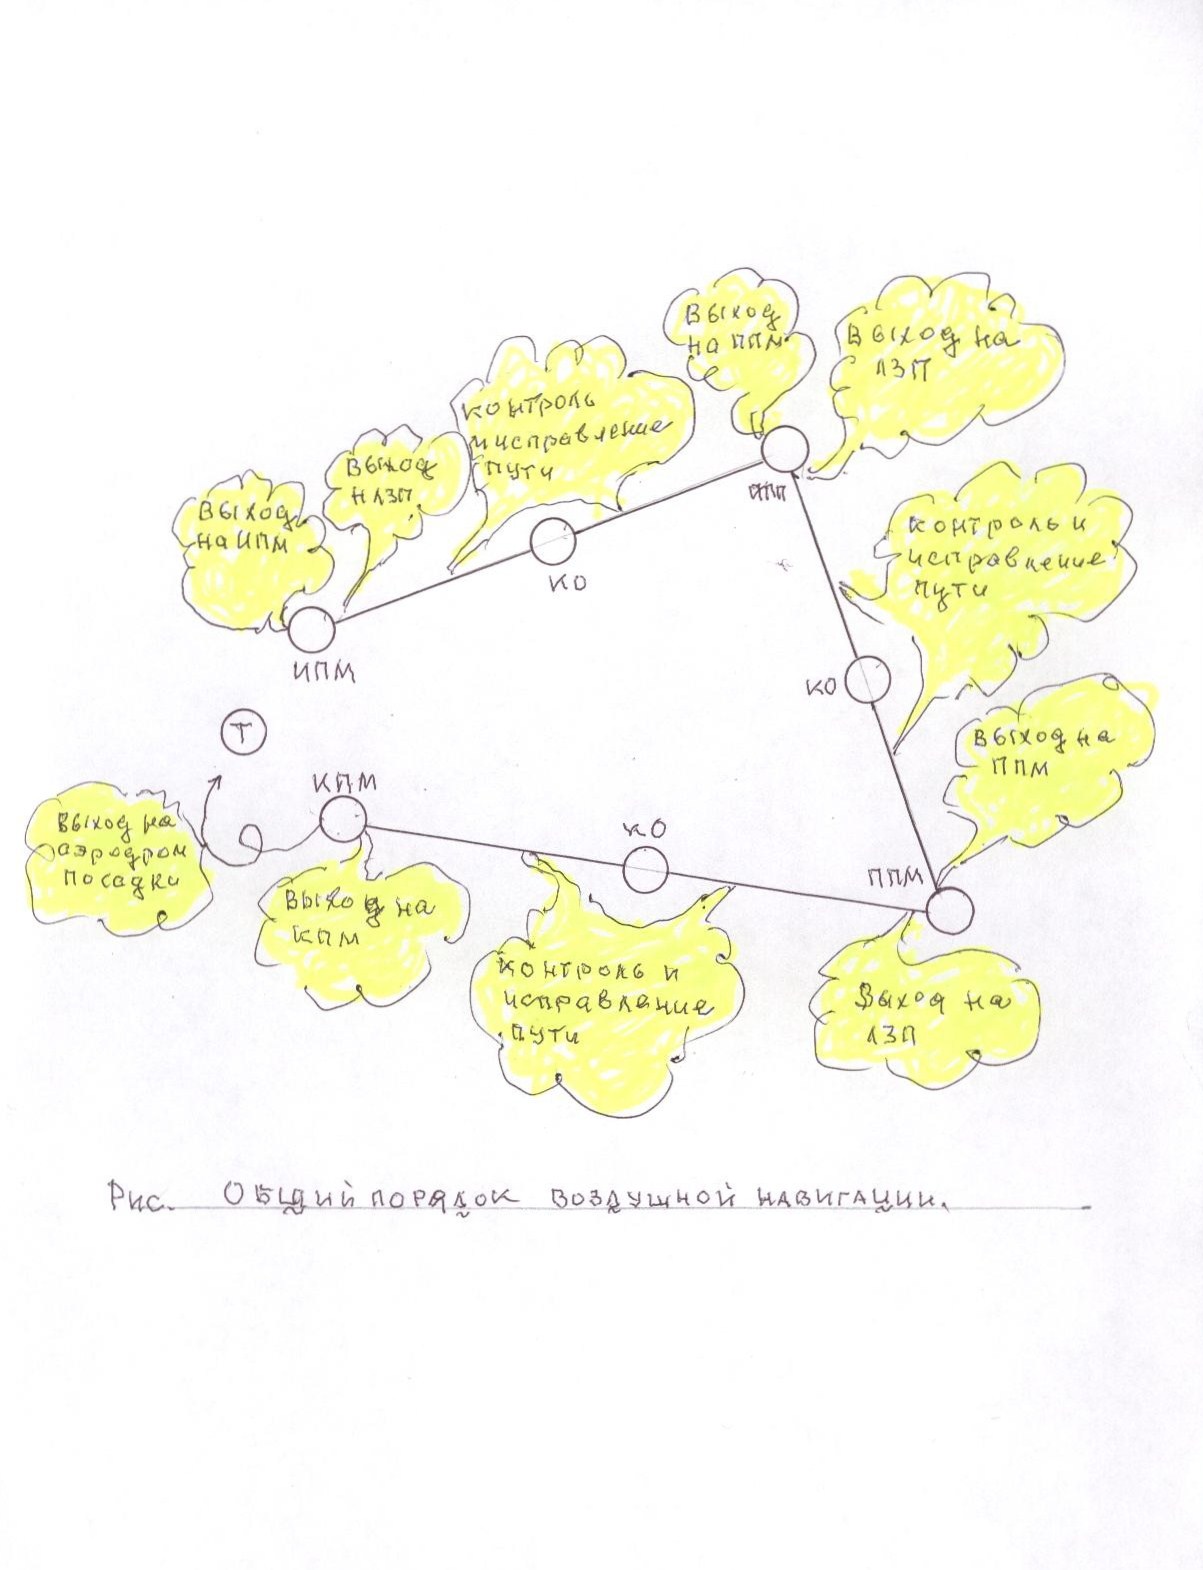 Выход
на ППМ
Выход на
ЛЗП
контроль
и исправление
пути
Выход
НЛЗП
Выход
на ИПМ
ППП
контроль и
исправление
пути
КО
ИПМ
КО
Т
Выход на
ППМ
КПМ
Выход на
аэродром
посадки
КО
ППМ
Выход на
КПМ
контроль и
исправление
пути
Выход на
ЛЗП
Рис. Общий порядок воздушной навигации.